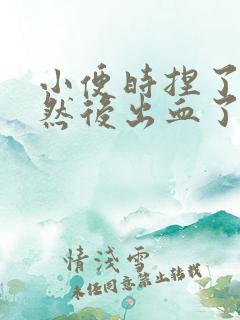 小便時捏了
然後出血了
情淺雪
未任同意禁止转载